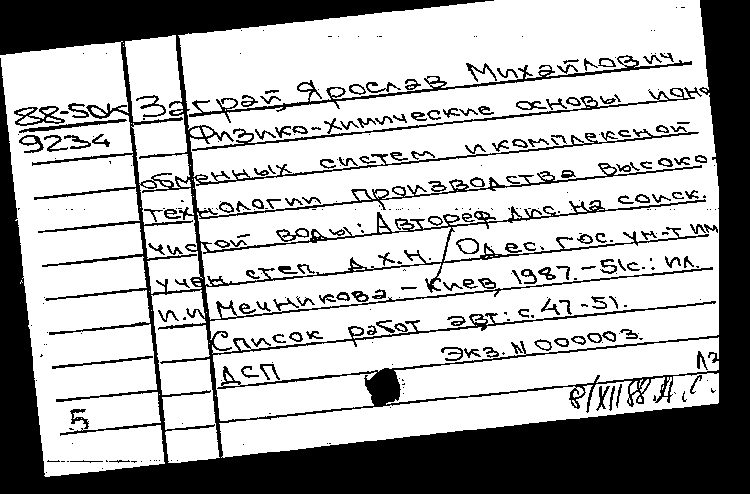 88-50К Заграй, Ярослав Михайлович.
9234 Физико-химические основы ионо
обменных систем и комплексной
технологии производства высоко-
чистой воды: Автореф дис. на соиск.
учен. степ. д.х.н. / Одес. гос. ун-т им
И.И. Мечникова. - Киев, 1987. - 51с.: ил.
Список работ авт.: с. 47-51.
ДСП Экз. N 000003.
5 8/XII 88